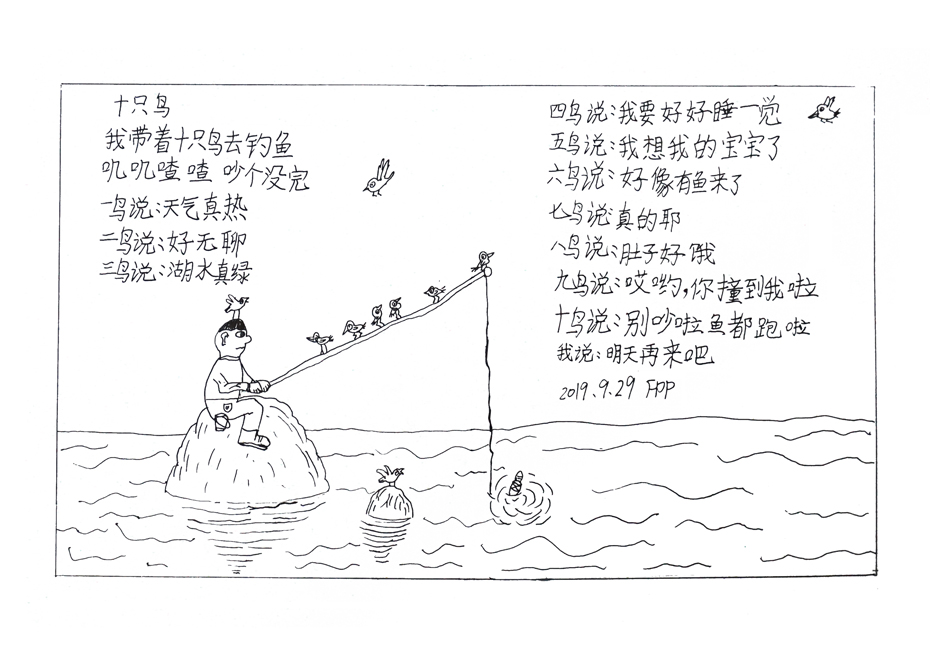 十只鸟
我带着十只鸟去钓鱼
叽叽喳喳 吵个没完
一鸟说:天气真热
二鸟说:好无聊
三鸟说:湖水真绿
四鸟说:我要好好睡一觉
五鸟说:我想我的宝宝了
六鸟说:好像有鱼来了
七鸟说:真的耶
八鸟说:肚子好饿
九鸟说:哎哟,你撞到我啦
十鸟说:别吵啦鱼都跑啦
我说:明天再来吧
2019.9.29